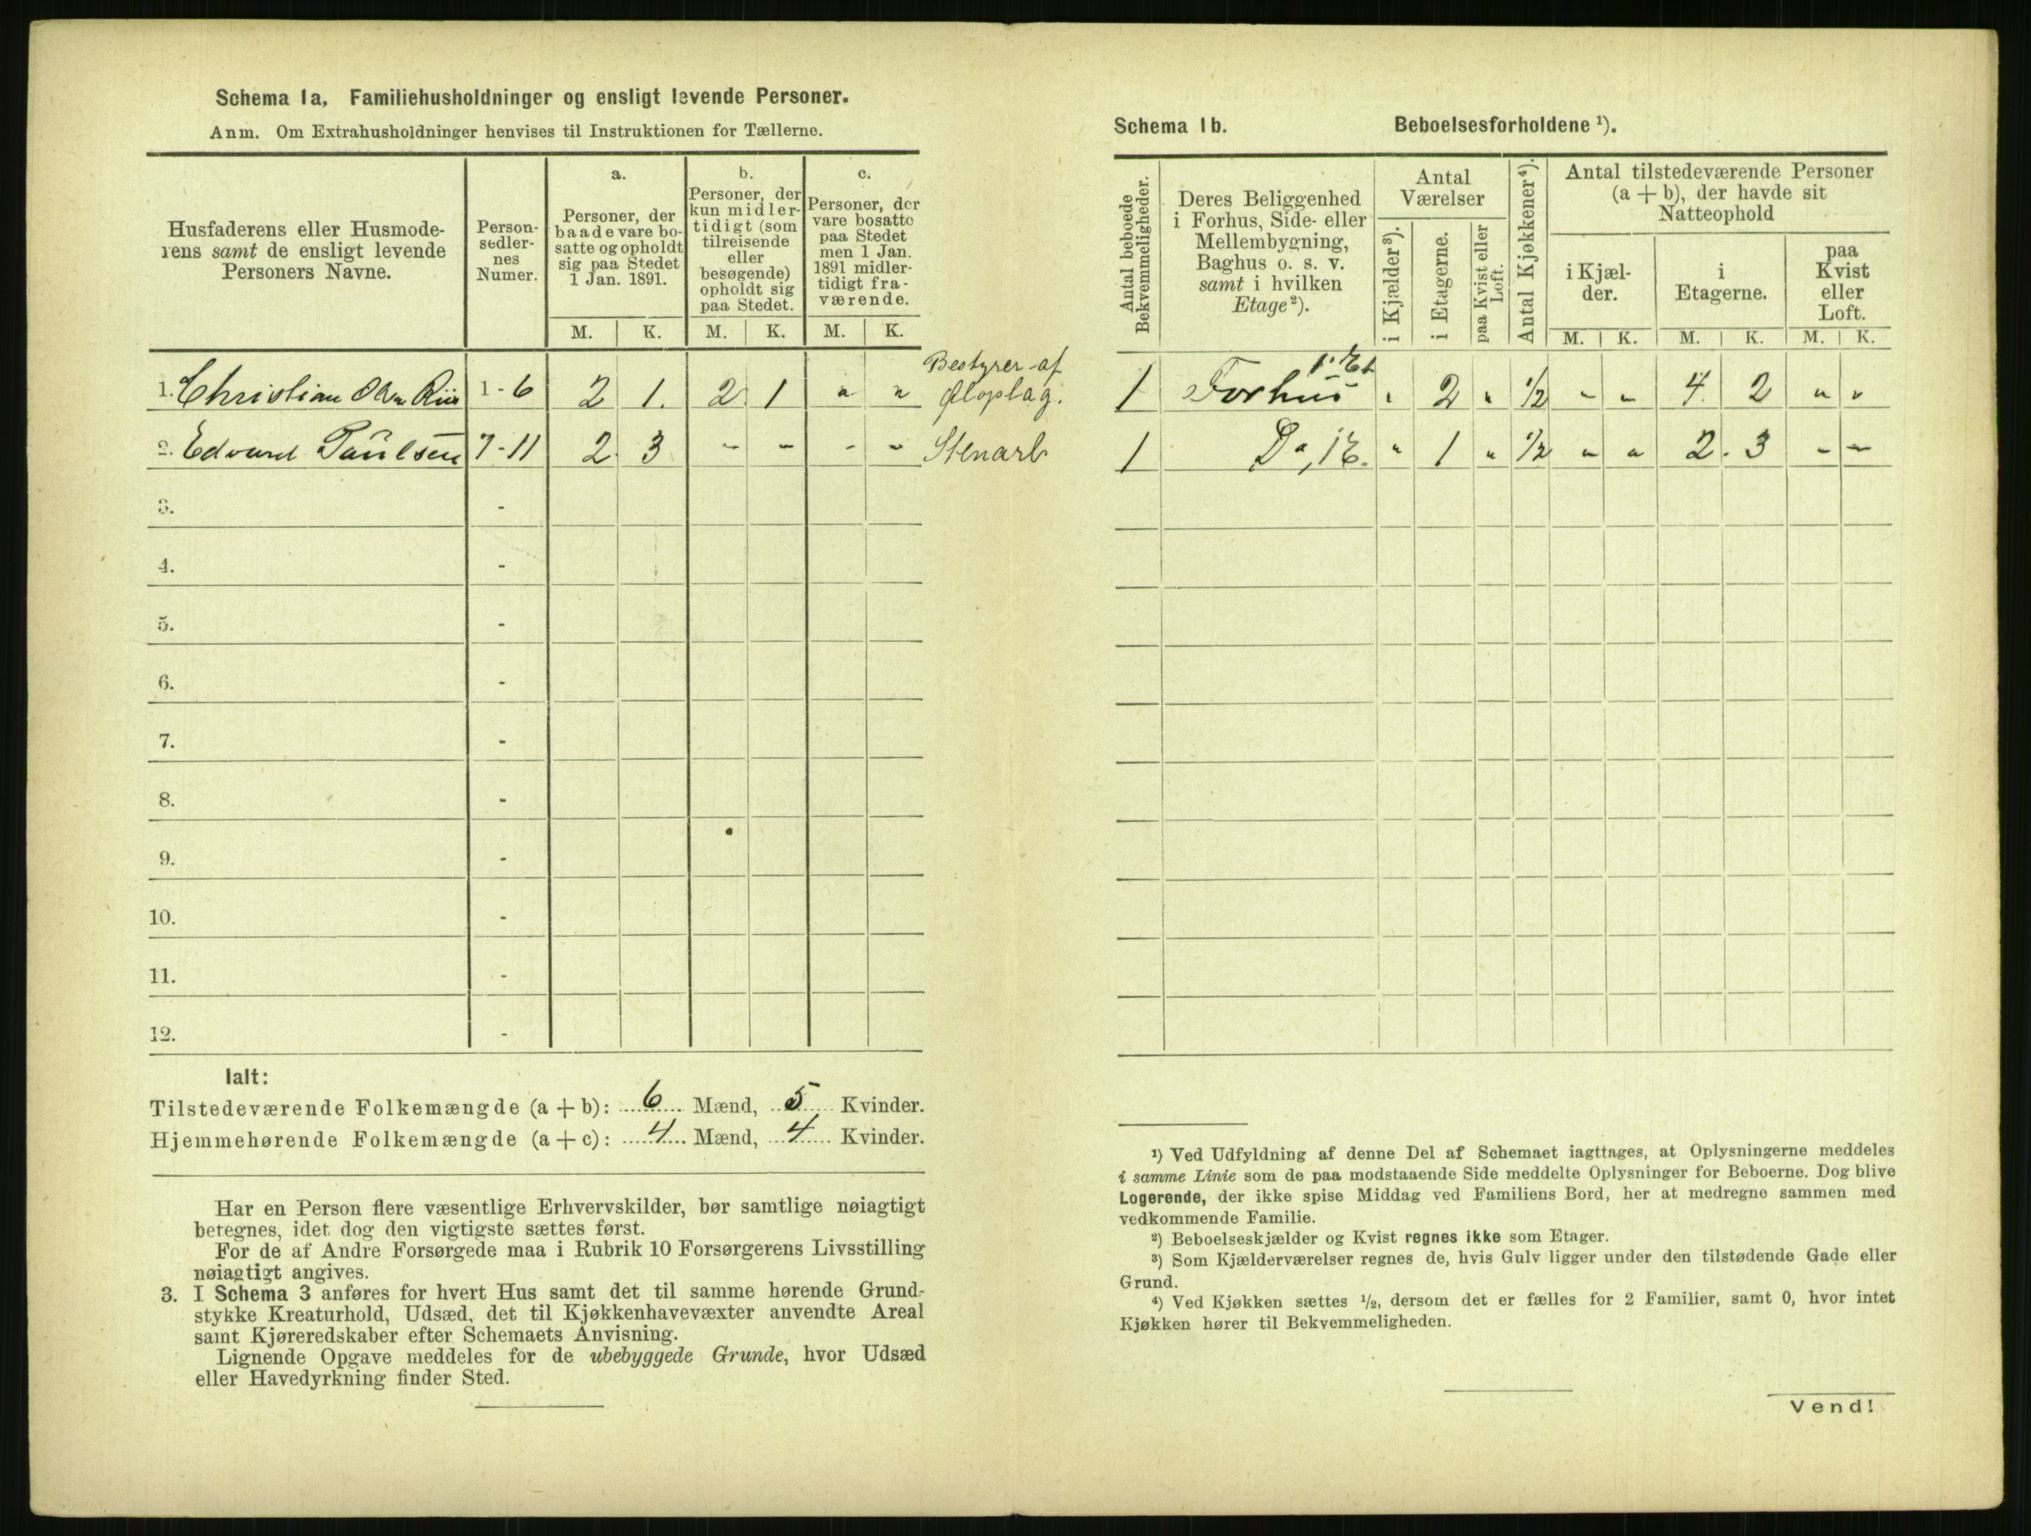 Schema 1a, Familiehusholdninger og ensligt levende Personer.
Anm. Om Extrahusholdninger henvises til Instruktionen for Tællerne.
Husfaderens eller Husmode-
rens samt de ensligt levende
Personers Navne.
Person-
sedler-
nes
Numer.
a.
Personer, der
baade vare bo-
satte og opholdt
sig paa Stedet
1 Jan. 1891.
b.
Personer, der
kun midler-
tidigt (som
tilreisende
eller
besøgende)
opholdt sig
paa Stedet.
c.
Personer, der
vare bosatte
paa Stedet
men 1 Jan.
1891 midler-
tidigt fra-
værende.
M. K. M. K. M. K.
1. Christian Olsen Riis 1 - 6 2 1. 2 1 " " Bestyrer af
Øloplag.
2. Edvard Paulsen 7 - 11 2 3 - - - - Stenarb
3. -
4. -
5. -
6. -
7. -
8. -
9. -
10. -
11. -
12. -
Ialt:
Tilstedeværende Folkemængde (a + b): 6 Mænd, 5 Kvinder.
Hjemmehørende Folkemængde (a + c): 4 Mænd, 4 Kvinder.
Har en Person flere væsentlige Erhvervskilder, bør samtlige nøiagtigt
betegnes, idet dog den vigtigste sættes først.
For de af Andre Forsørgede maa i Rubrik 10 Forsørgerens Livsstilling
nøiagtigt angives.
3. I Schema 3 anføres for hvert Hus samt det til samme hørende Grund-
stykke Kreaturhold, Udsæd, det til Kjøkkenhavevæxter anvendte Areal
samt Kjøreredskaber efter Schemaets Anvisning.
Lignende Opgave meddeles for de ubebyggede Grunde, hvor Udsæd
eller Havedyrkning finder Sted.
Schema 1b. Beboelsesforholdene ¹).
Antal beboede
Bekvemmeligheder.
Deres Beliggenhed
i Forhus, Side- eller
Mellembygning,
Baghus o. s. v.
samt i hvilken
Etage²).
Antal
Værelser
i Kjælder³).
i Etagerne.
paa Kvist eller
Loft.
Antal Kjøkkener⁴).
Antal tilstedeværende Personer
(a + b), der havde sit
Natteophold
i Kjæl-
der.
i
Etagerne.
paa
Kvist
eller
Loft.
M. K. M. K. M. K.
1 Forhus 1. Et " 2 " ½ " " 4. 2 " "
1 Do, 1 E. " 1 " ½ " " 2. 3 - -
¹) Ved Udfyldning af denne Del af Schemaet iagttages, at Oplysningerne meddeles
i samme Linie som de paa modstaaende Side meddelte Oplysninger for Beboerne. Dog blive
Logerende, der ikke spise Middag ved Familiens Bord, her at medregne sammen med
vedkommende Familie.
²) Beboelseskjælder og Kvist regnes ikke som Etager.
³) Som Kjælderværelser regnes de, hvis Gulv ligger under den tilstødende Gade eller
Grund.
⁴) Ved Kjøkken sættes ½, dersom det er fælles for 2 Familier, samt 0, hvor intet
Kjøkken hører til Bekvemmeligheden.
Vend!